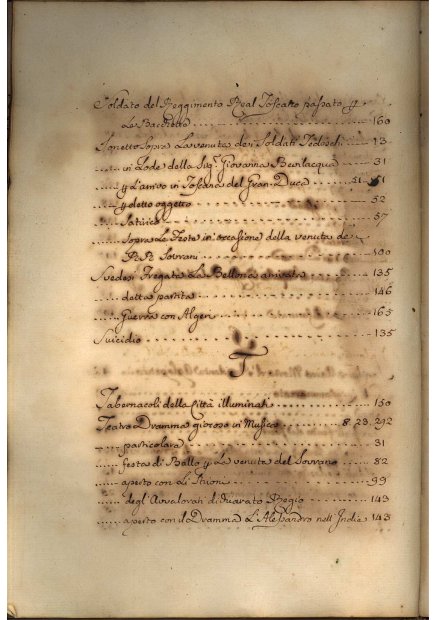 Soldato del Reggimento Real Toscano passato p
Le Bacchette .................. 160
Sonetto Sopra La venuta dei Soldati Tedeschi ... 13
..... in Lode della Sig.ra Giovanna Bevilacqua ..... 31
..... p L'arrivo in Toscana del Gran-Duca ..... 51. 51
..... p detto oggetto .................. 52
..... Satirico .................. 57
..... Sopra Le Feste in occasione della venuta de
RR Sovrani .................. 100
Svedesi Fregata La Bellona arrivata ........ 135
..... detta partita .................. 146
..... Guerra con Algeri .................. 165
Suicidio .................. 135
T
Tabernacoli della Città illuminati ......... 150
Teatro Dramma giocoso in Musica ....... 8. 23. 292
..... particolare .................. 31
..... festa di Ballo p La venuta del Sovrano .... 82
..... aperto con Li Strioni .................. 99
..... degl'Avvalorati 143
..... aperto con il Dramma L'Alessandro nell'Indie 143